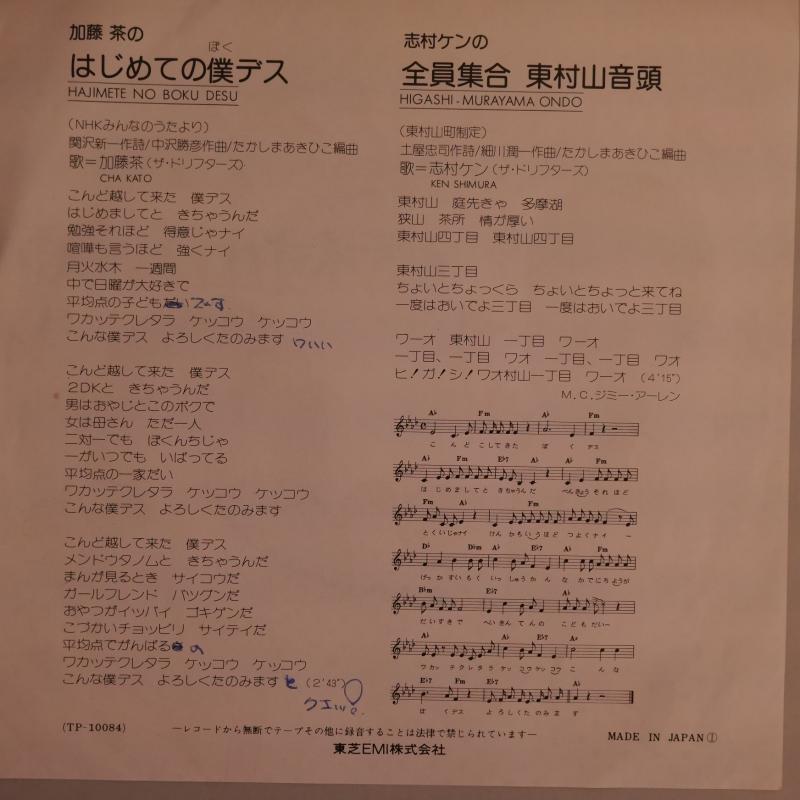 加藤 茶の
ぼく
はじめての僕デス
HAJIMETE NO BOKU DESU
(NHKみんなのうたより)
関沢新一作詩/中沢勝彦作曲/たかしまあきひこ編曲
歌=加藤茶(ザ・ドリフターズ)
CHA KATO
こんど越して来た 僕デス
はじめましてと きちゃうんだ
勉強それほど 得意じゃナイ
喧嘩も言うほど 強くナイ
月火水木 一週間
中で日曜が大好きで
平均点の子ども いでーす。
ワカッテクレタラ ケッコウ ケッコウ
こんな僕デス よろしくたのみます ワハハハ
こんど越して来た 僕デス
2DKと きちゃうんだ
男はおやじとこのボクで
女は母さん ただ一人
二対一でも ぼくんちじゃ
一がいつでも いばってる
平均点の一家だい
ワカッテクレタラ ケッコウ ケッコウ
こんな僕デス よろしくたのみます
こんど越して来た 僕デス
メンドウタノムと きちゃうんだ
まんが見るとき サイコウだ
ガールフレンド バツグンだ
おやつがイッパイ ゴキゲンだ
こづかいチョッピリ サイテイだ
平均点でがんばる の
ワカッテクレタラ ケッコウ ケッコウ
こんな僕デス よろしくたのみます と (2'43")
クエッ。
志村ケンの
全員集合 東村山音頭
HIGASHI-MURAYAMA ONDO
(東村山町制定)
土屋忠司作詩/細川潤一作曲/たかしまあきひこ編曲
歌=志村ケン(ザ・ドリフターズ)
KEN SHIMURA
東村山 庭先きゃ 多摩湖
狭山 茶所 情が厚い
東村山四丁目 東村山四丁目
東村山三丁目
ちょいとちょっくら ちょいとちょっと来てね
一度はおいでよ三丁目 一度はおいでよ三丁目
ワーオ 東村山 一丁目 ワーオ
一丁目、一丁目 ワオ 一丁目、一丁目 ワオ
ヒ!ガ!シ!ワオ村山一丁目 ワーオ (4'15")
M.C.ジミー・アーレン
A♭ Fm A♭ Fm
こんどこしてきた ぼくデス
A♭ Fm E♭7 A♭ A♭ Fm
はじめましてと きちゃうんだ べんきょうそれほど
Fm A♭ Fm
とくいじゃナイ けんかもいうほど つよくナイー
D♭ D♭m A♭ E♭7 A♭ Fm
げっかすいもく いっしゅうかん なかでにちようが
B♭m E♭7
だいすきで へいきんてんの こどもだいー
A♭ A♭ E♭7
ワカッテクレタラ ケッコウケッコウ こんな
E♭7 Fm E♭7 A♭
ぼくデス よろしくたのみます
(TP-10084)
―レコードから無断でテープその他に録音することは法律で禁じられています―
MADE IN JAPAN①
東芝EMI株式会社